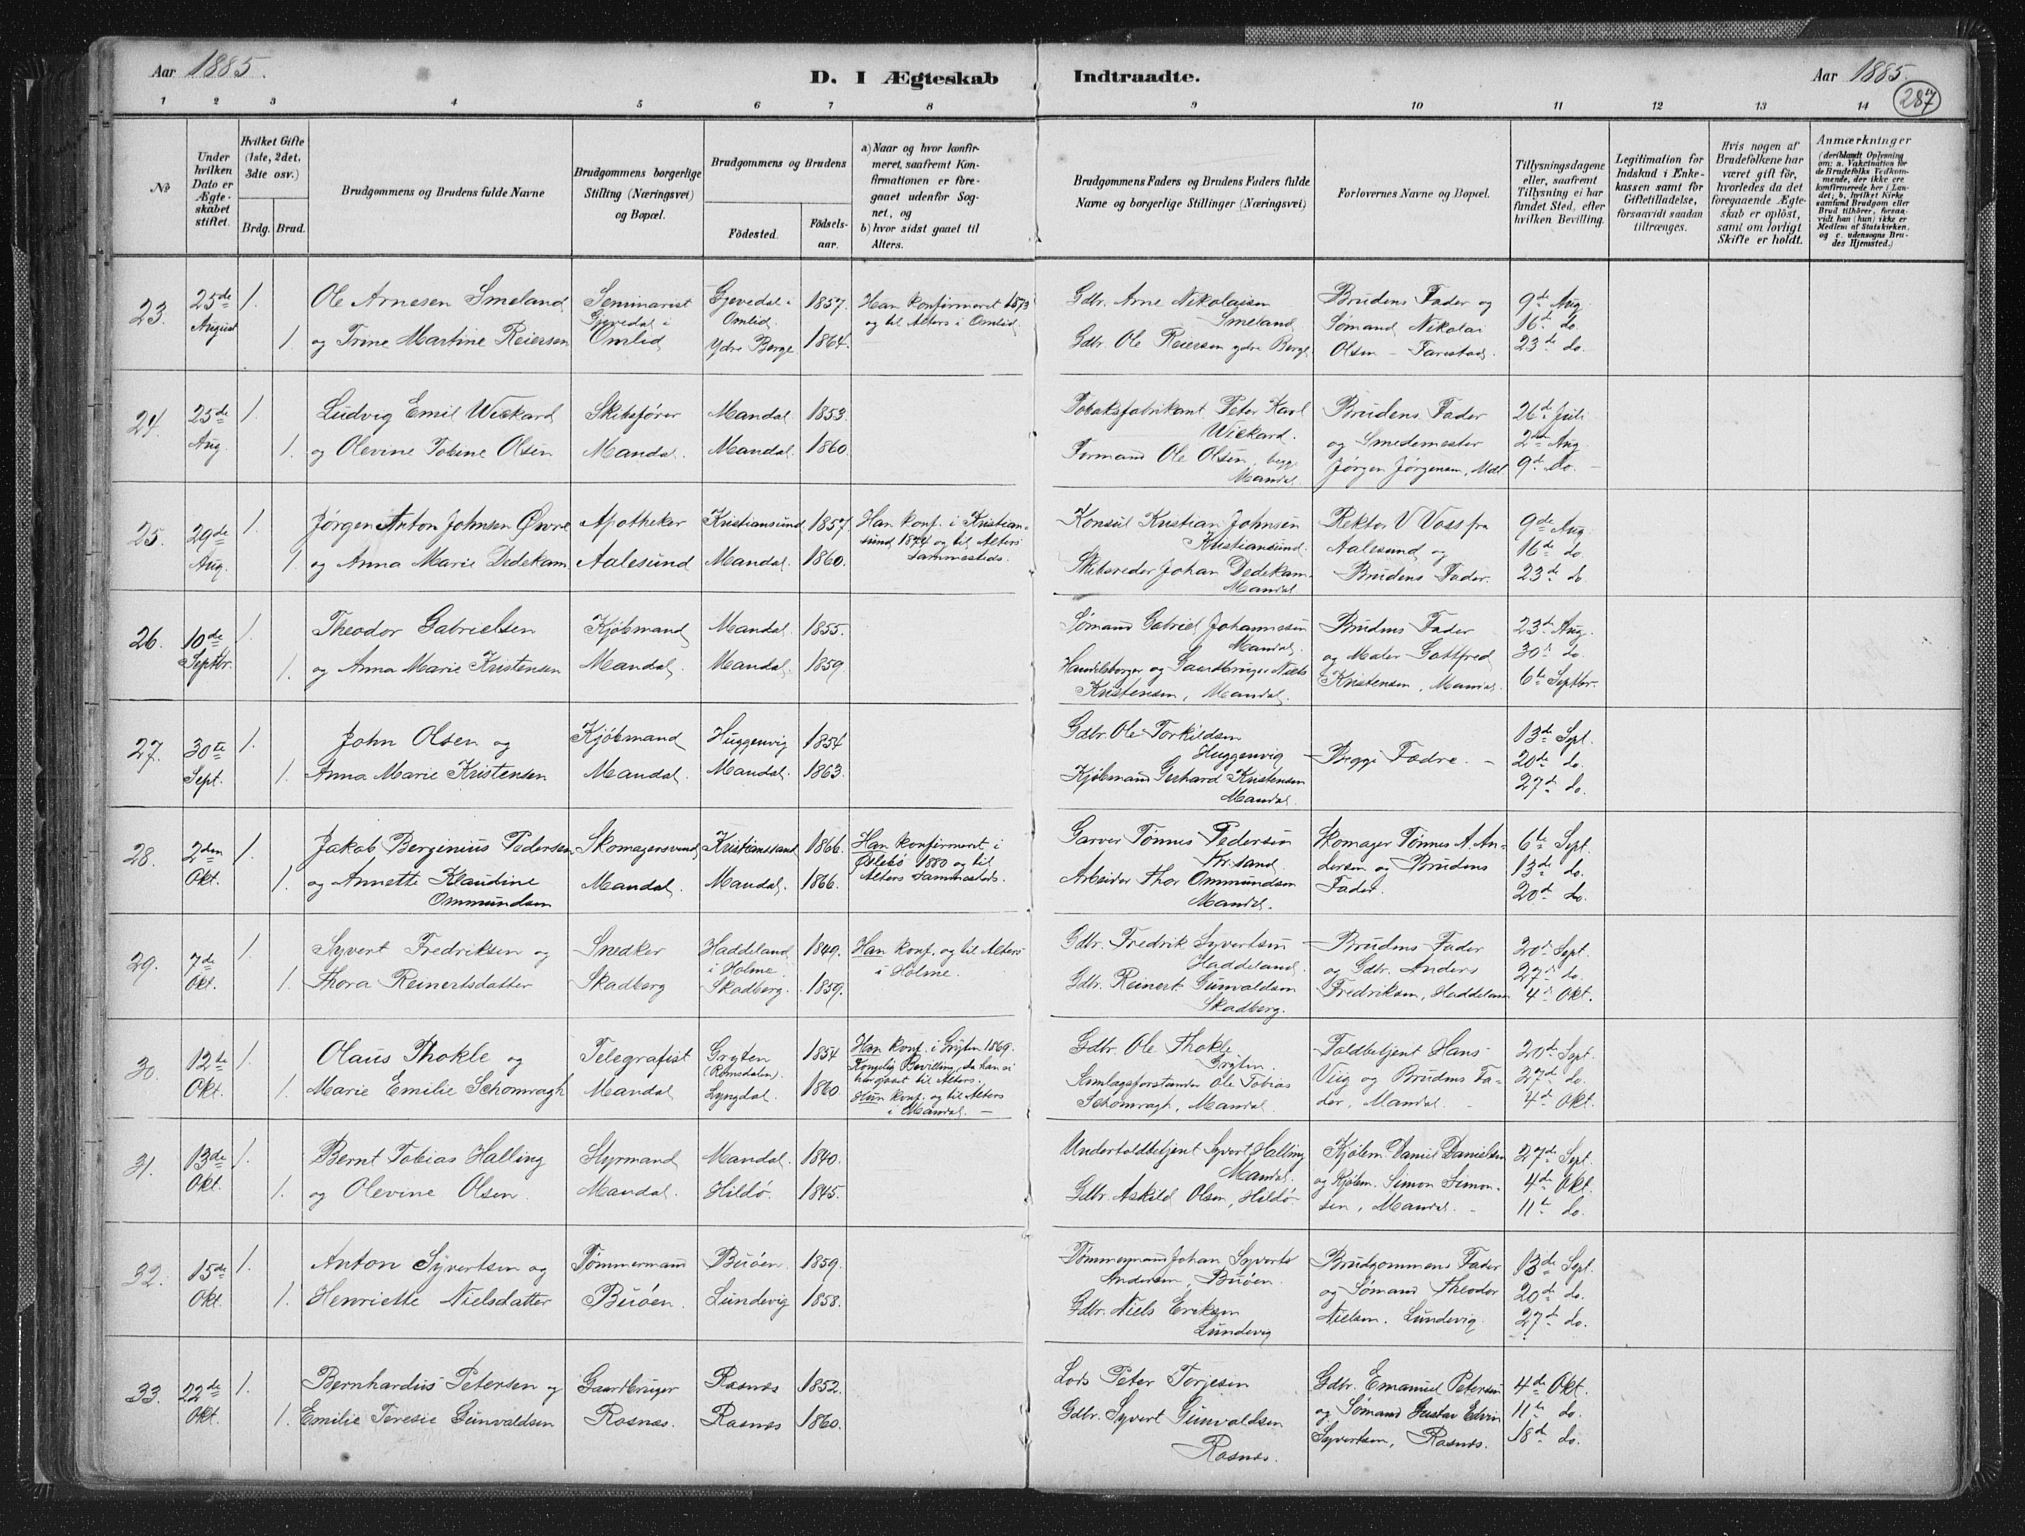 Aar 1885.
D. I Ægteskab Indtraadte.
Aar 1885.
287
1 2 3 4 5 6 7 8 9 10 11 12 13 14
No
Under hvilken Dato er Ægteskabet stiftet.
Hvilket Gifte (1ste, 2det. 3dte osv.)
Brdg. Brud.
Brudgommens og Brudens fulde Navne
Brudgommens borgerlige Stilling (Næringsvei) og Bopæl.
Brudgommens og Brudens
Fødested. Fødselsaar.
a) Naar og hvor konfirmeret, saafremt Konfirmationen er foregaaet udenfor Sognet, og
b) hvor sidst gaaet til Alters.
Brudgommens Faders og Brudens Faders fulde Navne og borgerlige Stillinger (Næringsvei)
Forlovernes Navne og Bopæl.
Tillysningsdagene eller, saafremt Tillysning ei har fundet Sted, efter hvilken Bevilling.
Legitimation for Indskud i Enkekassen samt for Giftetilladelse, forsaavidt saadan tiltrænges.
Hvis nogen af Brudefolkene har været gift før, hvorledes da det foregaaende Ægteskab er opløst, samt om lovligt Skifte er holdt.
Anmærkninger
(deriblandt Oplysning om: a. Vakcination for de Brudefolks Vedkommende, der ikke ere konfirmerede her i Landet; b. hvilket Kirkesamfund Brudgom eller Brud tilhører, forsaavidt han (hun) ikke er Medlem af Statskirken, og c. udensogns Brudes Hjemsted.)
23. 25de August 1. Ole Arnesen Smeland Seminarist Gjevedal i Omlid Gjevedal i Omlid 1857. Han konfirmeret 1873 og til Alters i Omlid. Gdbr. Arne Nikolaisen Smeland. Brudens Fader og Sømand Nikolai Olsen - Farestad. 9de Aug. 16de do. 23de do.
1. og Trine Martine Reiersen Ydre Berge 1864. Gdbr. Ole Reiersen ydre Berge
24. 25de Aug. 1. Ludvig Emil Wickard Skibsfører Mandal. Mandal 1853. Tobaksfabrikant Peter Karl Wickard. Brudens Fader og Smedemester Jørgen Jørgensen, Mdl. 26de Juli 2den Aug. 9de do.
1. og Olevine Tobine Olsen Mandal. 1860. Formand Ole Olsen, begge Mandal.
25. 29de Aug. 1. Jørgen Anton Johnsen Øvre Apotheker Aalesund Kristiansund 1857. Han konf. i Kristiansund 1874 og til Alters sammesteds. Konsul Kristian Johnsen Kristiansund. Rektor V Voss fra Aalesund og Brudens Fader. 9de Aug. 16de do. 23de do.
1. og Anna Marie Dedekam Mandal. 1860. Skibsreder Johan Dedekam Mandal
26. 10de Septbr. 1. Theodor Gabrielsen Kjøbmand Mandal. Mandal. 1855. Sømand Gabriel Johannesen Mandal. Brudens Fader og Maler Gottfred Kristensen, Mandal. 23de Aug. 30te do. 6te Septbr.
1. og Anna Marie Kristensen Mandal. 1859. Handelsborger og Gaardbruger Niels Kristensen, Mandal.
27. 30te Sept. 1. John Olsen og Kjøbmand Mandal. Huggenvig 1854 Gdbr. Ole Torkildsen Huggenvig Begge Fædre. 13de Sept. 20de do. 27de do.
1. Anna Marie Kristensen Mandal. 1863. Kjøbmand Gerhard Kristensen Mandal.
28. 2den Okt. 1. Jakob Berginius Pedersen Skomagersvend Mandal. Kristianssand 1866. Han konfirmeret i Øslebø 1880 og til Alters sammesteds. Garver Tønnes Pedersen Kr.sand. Skomager Tønnes A. Andersen og Brudens Fader. 6te Sept. 13de do. 20de do.
1. og Annette Klaudine Ommundsen Mandal. 1866. Arbeider Thor Ommundsen Mandal.
29. 7de Okt. 1. Syvert Fredriksen og Snedker Skadberg Haddeland i Holme. 1849. Han konf. og til Alters i Holme. Gdbr. Fredrik Syvertsen Haddeland. Brudens Fader og Gdbr. Anders Fredriksen, Haddeland 20de Sept. 27de do. 4de Okt.
1. Thora Reinertsdatter Skadberg. 1859. Gdbr. Reinert Gunvaldsen Skadberg.
30 12te Okt. 1. Olaus Thokle og Telegrafist Mandal Gryten (Romsdalen). 1854 Han konf. i Gryten 1869. Kongelig Bevilling, da han ei har gaaet til Alters. Hun konf. og til Alters i Mandal. Gdbr. Ole Thokle Gryten. Toldbetjent Hans Vig og Brudens Fader, Mandal. 20de Sept. 27de do. 4de Okt.
1. Marie Emilie Schomragh Lyngdal. 1860. Ole Tobias Schomragh, Mandal.
31. 13de Okt. 1. Bernt Tobias Halling Styrmand Mandal. Mandal. 1840. Undertoldbetjent Syvert Halling Mandal. Kjøbm. Daniel Danielsen og Kjøbm. Simon Simonsen, Mandal. 27de Sept. 4de Okt. 11te do.
1. og Olevine Olsen. Hildø. 1845. Gdbr. Askild Olsen, Hildø.
32. 15de Okt. 1. Anton Syvertsen og Tømmermand Buøen. Buøen 1859. Tømmermand Johan Syverts Andersen, Buøen. Brudgommens Fader og Sømand Theodor Nielsen. Lundevig. 13de Sept. 20de do. 27de do.
1. Henriette Nielsdatter Lundevig 1858. Gdbr. Niels Eriksen Lundevig
33. 22de Okt. 1. Bernhardus Petersen og Gaardbruger Rosnæs. Rosnæs 1852. Lods Peter Terjesen Gdbr. Emanuel Petersen og Sømand Gustav Edvin Syvertsen, Rosnæs. 4de Okt. 11te do. 18de do.
1. Emilie Teresie Gunvaldsen Rosnæs 1860. Gdbr. Syvert Gunvaldsen Rosnæs.